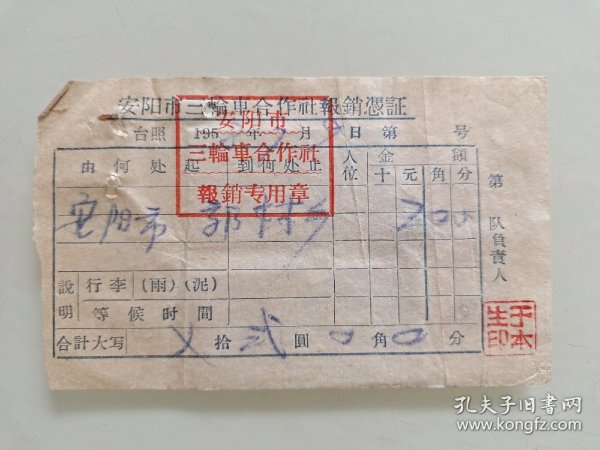 安阳市三輪車合作社報銷憑証
台照 195 年 月 日 第 号
安阳市
三輪車合作社
報銷专用章
由何处起 到何处止 人位 金額 十元角分
安阳市 郭村 200
第 队負責人
說明 行李 (雨) (泥)
等候时間
合計大写 乂拾弍圓0角0分
于本生印
孔夫子旧书网
www.kongfz.com